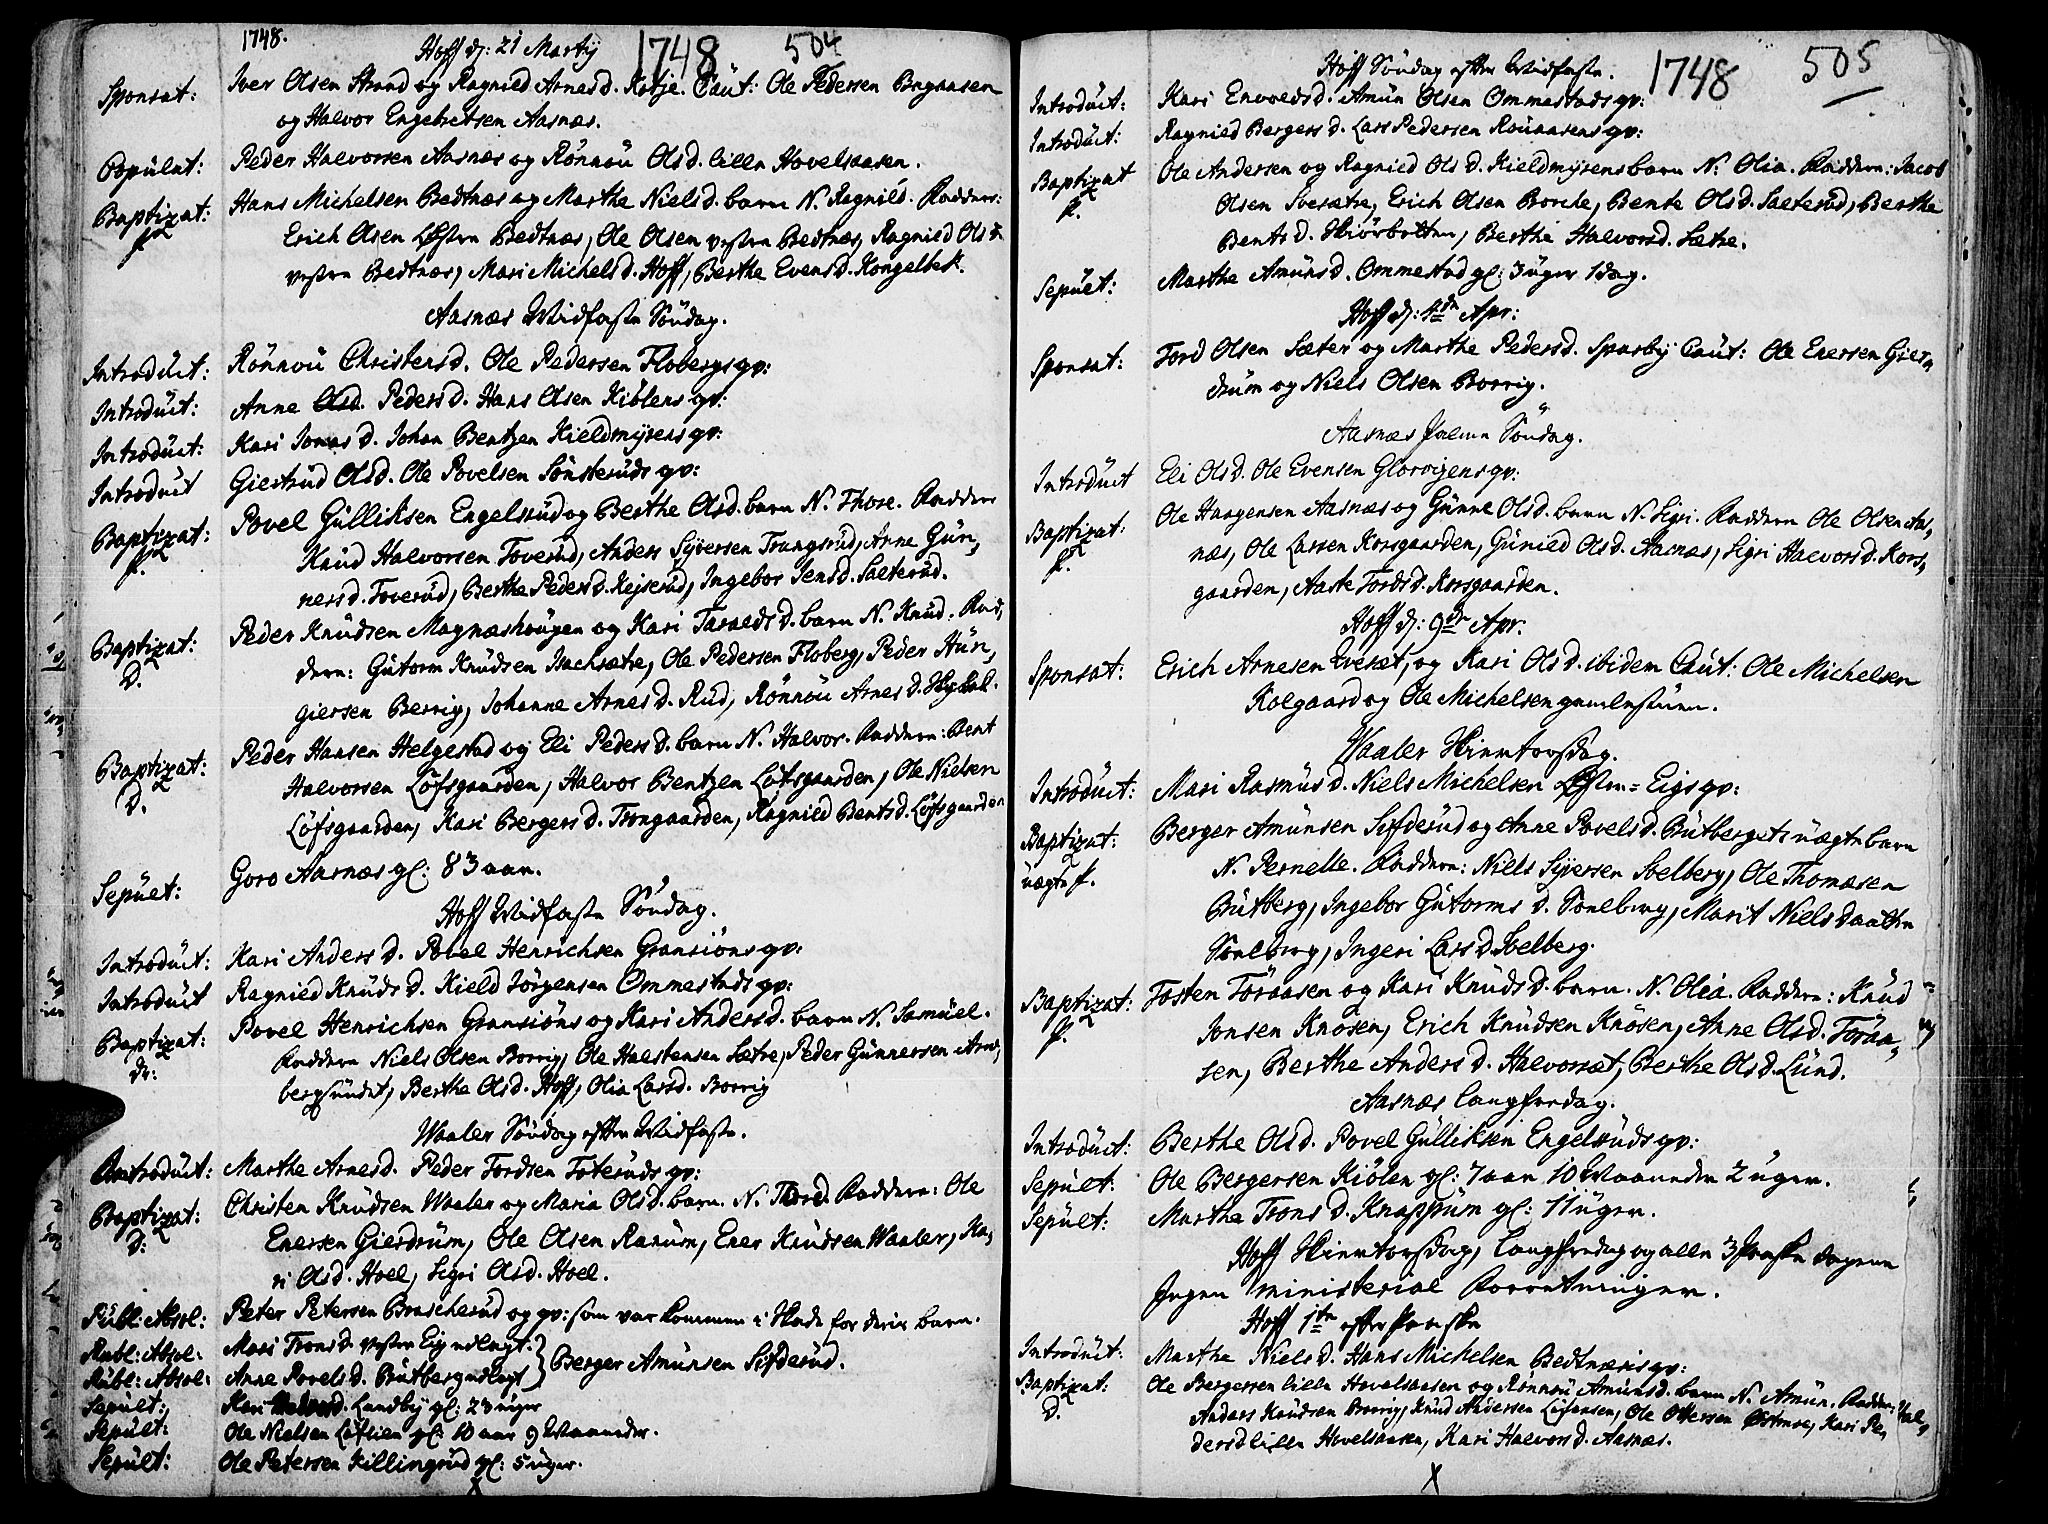 1748.
Hoff d: 21 Martij
1748
504
Sponsat: Iver Olsen Strand og Ragnild Arnesd. Kotje. Caut: Ole Pedersen Bagaasen
og Halvor Engebretsen Aasnæs.
Copulat: Peder Halvorsen Aasnæs og Rönnou Olsd. lille Hovelsaasen.
Baptizat: Hans Michelsen Bedtnæs og Marthe Nielsd. barn N. Ragnild. Fadder:
Erich Olsen Østen Bedtnæs, Ole Olsen vesten Bedtnæs, Ragnild Olsd
vesten Bedtnæs, Mari Michelsd. Hoff, Berthe Evensd. Kongelbek.
Aasnæs Midfaste Söndag.
Introduct: Rönnou Christensd. Ole Pedersen Flobergs qv:
Introduct: Anne Olsd. Pedersd. Hans Olsen Kiölens qv:
Introduct: Kari Jonæsd. Johan Bentzen Kieldmyrens qv:
Introduct Giertrud Olsd. Ole Povelsen Sönsteruds qv:
Baptizat: f. Povel Gulliksen Engelsrud og Berthe Olsd. barn N. Thore. Faddere
Knud Halvorsen Toverud, Anders Syversen Trangsrud, Anne Gun,
nersd. Toverud, Berthe Pedersd. Kejserud, Ingebor Jensd. Sætterud.
Baptizat: D. Peder Knudsen Magnæshougen og Kari Taraldsd. barn N. Knud. Fad,
dere: Gutorm Knudsen Isachsætre, Ole Pedersen Floberg, Peder Hun,
giersen Berrig, Johanne Arnesd. Rud, Rönnou Arnesd.
Baptizat: D. Peder Hansen Helgestad og Eli Pedersd. barn N. Halvor. Faddere: Bent
Halvorsen Löfsgaarden, Halvor Bentzen Löfsgaarden, Ole Nielsen
Löfsgaarden, Kari Bergersd. Trongaarden, Ragnild Bentsd. Löfsgaarden
Sepult: Goro Aasnæs gl: 83 aar.
Hoff Midfaste Söndag.
Introduct: Kari Andersd. Povel Henrichsen Gransiöns qv:
Introduct Ragnild Knudsd. Kield Jörgensen Ommestads qv:
Baptizat: dr: Povel Henrichsen Gransiöns og Kari Andersd. barn N. Samuel.
Faddere Niels Olsen Borrig, Ole Halstensen Sætre, Peder Gunnersen Arne,
bergsundet, Berthe Olsd. Hoff, Olia Larsd. Borrig
Waaler Söndag efter Midfaste.
Introduct: Marthe Arnesd. Peder Tordsen Toteruds qv:
Baptizat: D: Christen Knudsen Waaler og Maria Olsd. barn. N. Tord. Faddere: Ole
Enersen Gierdrum, Ole Olsen Ranum, Ener Knudsen Waaler, Ka,
ri Olsd. Hoel, Sigri Olsd. Hoel.
Publ: Absol: Peter Petersen Brascherud og qv: som var kommen i skade for deris barn.
Publ: Absol: Mari Tronsd. vesten Eig udlagt.
Publ: Absol: Anne Povelsd. Butberg udlagt } Berger Amunsen Sifderud.
Sepult: Kari Lundby gl: 23 uger
Sepult: Ole Nielsen Löflien gl: 10 aar 9 Maaneder.
Sepult: Ole Petersen Killingrud gl: 5 uger.
X
Hoff Söndag efter Midfaste.
1748
505
Introduct: Kari Envoldsd. Amun Olsen Ommestads qv:
Introduct: Ragnild Bergersd. Lars Pedersen Rouaasens qv:
Baptizat f. Ole Andersen og Ragnild Olsd. Kieldmyrens barn N. Olia. Faddere: Jacob
Olsen Svesætre, Erich Olsen Borche, Bente Olsd. Sætterud, Berthe
Bentsd. Skiörbotten, Berthe Halvorsd. Sætre.
Sepult: Marthe Amunsd. Ommestad gl: 3 uger 1 dag.
Hoff d: 4de Apr:
Sponsat: Tord Olsen Sæter og Marthe Pedersd. Sparby Caut: Ole Enersen Gier,
drum og Niels Olsen Borrig.
Aasnæs Palme Söndag.
Introduct Eli Olsd. Ole Evensen Glorvigens qv:
Baptizat: f. Ole Haagensen Aasnæs og Gunne Olsd. barn N. Sigri. Faddere Ole Olsen Aas,
næs, Ole Larsen Korsgaarden, Gunild Olsd. Aasnæs, Sigri Halvorsd. Kors,
gaarden, Aaste Tordsd. Korsgaarden.
Hoff d: 9de Apr:
Sponsat: Erich Arnesen Evesæt, og Kari Olsd. ibidem Caut: Ole Michelsen
Kolgaard og Ole Michelsen gamlestuen.
Waaler Skiertorsdag.
Introduct: Mari Rasmusd. Niels Michelsen Østen=Eigs qv:
Baptizat: uægte f. Berger Amunsen Sifderud og Anne Povelsd. Butbergets uægte barn
N. Pernelle. Faddere: Niels Syversen Soelberg, Ole Thomæsen
Butberg, Ingebor Gutormsd. Soelberg, Marit Nielsdaatter
Soelberg, Ingeri Larsd. Soelberg.
Baptizat: f. Tosten Töraasen og Kari Knudsd. barn. N. Olia. Faddere: Knud
Jonsen Knosen, Erich Knudsen Knosen, Anne Olsd. Töraa,
sen, Berthe Andersd. Halvorsæt, Berthe Olsd. Lund.
Aasnæs Langfredag.
Introduct: Berthe Olsd. Povel Gulliksen Engelsruds qv:
Sepult: Ole Bergersen Kiölen gl: 7 aar 10 Maaneder 2 uger.
Sepult: Marthe Tronsd. Knappum gl: 11 uger.
Hoff Skiertorsdag, Langfredag og alle 3 Paaske dagene
Ingen ministerial Forretninger.
Hoff 1te efter Paaske
Introduct: Marthe Nielsd. Hans Michelsen Bedtnæsis qv:
Baptizat: D. Ole Bergersen lille Hovelsaasen og Rönnou Amunsd. barn N. Amun. Faddere: Hal,
Anders Knudsen Borrig, Knud Andersen Löfaasen, Ole Ottersen Østmoe, Kari Pe,
dersd lille Hovelsaasen, Kari Halvorsd. Aasnæs.
X